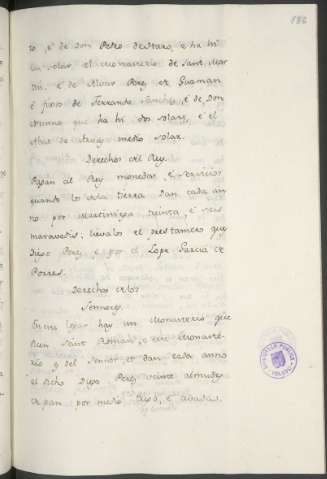 186
to, é de Don Pedro de Haro, e ha hi
un solar el Monasterio de Sant Mar
tin. é de Alvar Perez de Guzman
é fijos de Ferrando Sanchez, é de Don
Nunno que ha hi dos solares, é el
Abat de medio solar.
Derechos del Rey.
Pagan al Rey monedas, é servicios
quando los de la tierra dan cada an
no por Martiniega treinta, é seis
maravedis; lievalos el prestamero que
Diego Perez, é por el Lope Garcia de
Porres.
Derechos de los
Sennores.
En este logar hay un Monasterio que
dicen Sant Roman, é este Monaste-
rio es del Sennor, et dan cada anno
al dicho Diego Perez veinte almudes
de pan por medio é cevada.